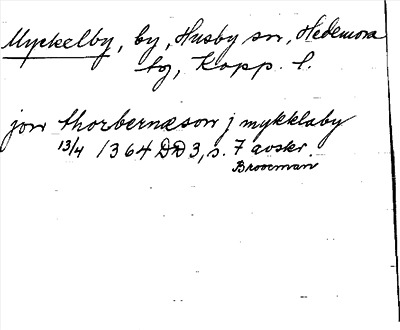 Myckelby, by, Husby sn, Hedemora
tg, Kopp. l.
jon thorbernæson j mykklaby
13/4 1364 DD 3, s. 7 avskr.
Brooeman